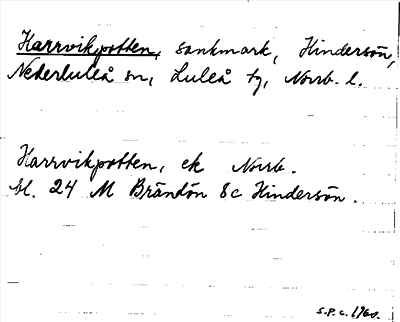 Harrvikpotten, sankmark, Hindersön,
Nederluleå sn, Luleå tg, Norrb. l.
Harrvikpotten, ek Norrb.
bl. 24 M Brändön 8c Hindersön.
S.P.C. 1960.